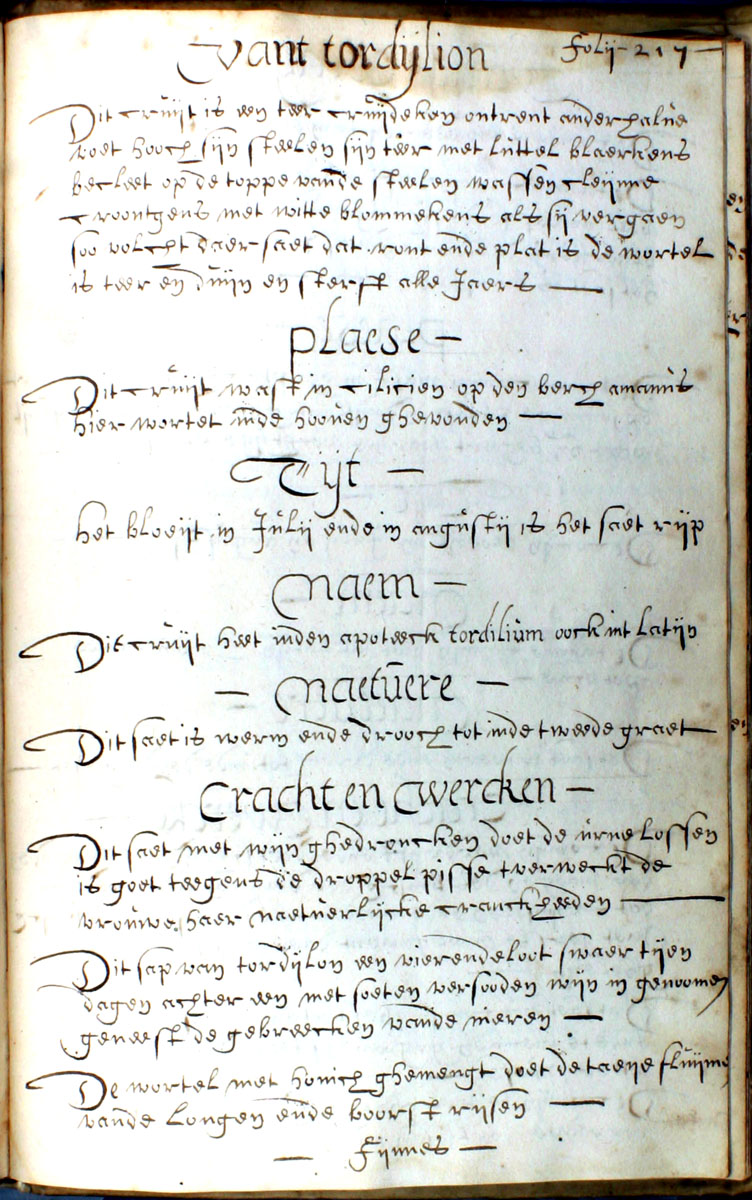 Vant tordijlion folij 217
Dit cruijt is een teer cruijdeken ontrent anderhalve
voet hooch sijn steelen sijn teer met luttel blaerkens
becleet op de toppe vande steelen wassen cleijnne
croontgens met witte blommekens als sij vergaen
soo volcht daer saet dat ront ende plat is de wortel
is teer en duijn en sterft alle Jaers
plaese
Dit cruijt wast in cilicien op den berch amanus
hier wortet inde hooven ghevonden
Tijt
het bloeijt in Julij ende in augustij is het saet rijp
Naem
Dit cruijt heet inden apoteeck tordilium oock int latijn
Naetuere
Dit saet is werm ende drooch tot inde tweede graet
Cracht en wercken
Dit saet met wijn ghedroncken doet de urne lossen
is goet teegens de droppel pisse tverweckt de
vrouwe haer naetuerlijcke cranckheeden
Dit sap van tordijlon een vierendeloot swaer tijen
dagen achter een met soeten versooden wijn in genoomen
geneest de gebreecken vande nieren
De wortel met honich ghemengt doet de taeije fluijme
vande longen ende boorst rijsen
Fijnnes